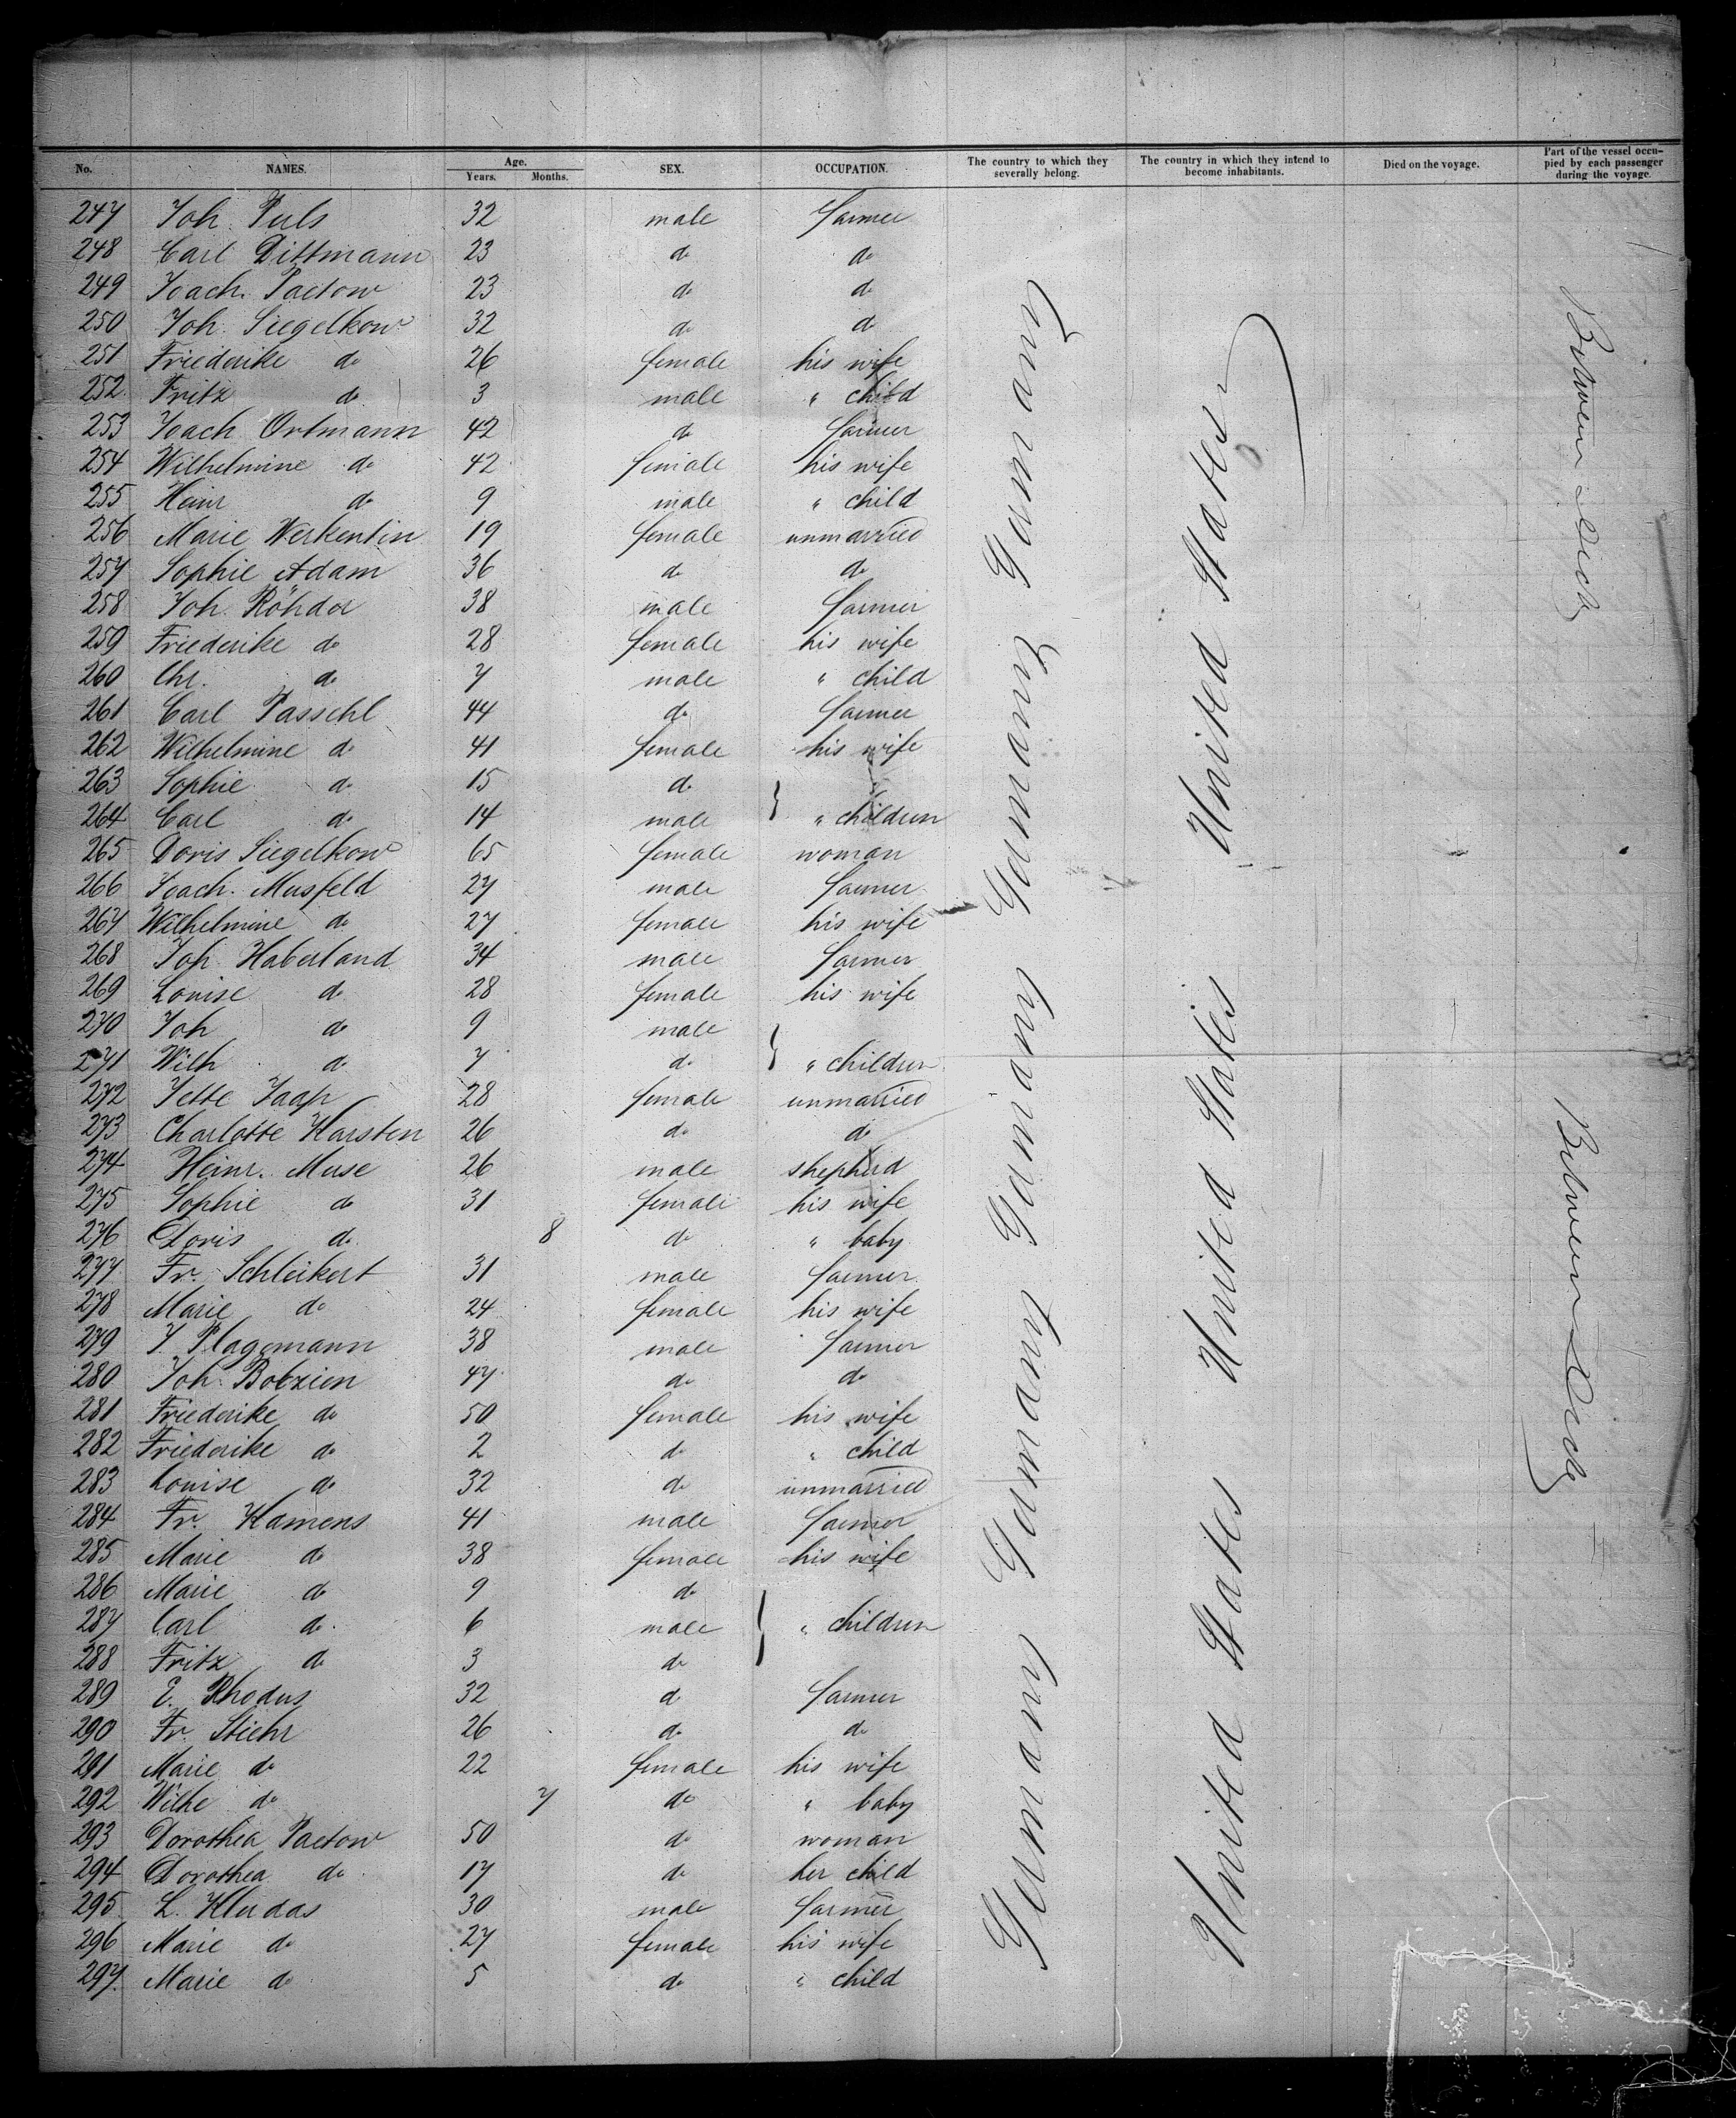 No. NAMES. Age. Years. Months. SEX. OCCUPATION. The country to which they severally belong. The country in which they intend to become inhabitants. Died on the voyage. Part of the vessel occupied by each passenger during the voyage.
247 Joh. Puls 32 male farmer
248 Carl Dittmann 23 do do
249 Joach. Paetow 23 do do
250 Joh. Siegelkow 32 do do
251 Friederike do 26 female his wife
252 Fritz do 3 male " child
253 Joach Ortmann 42 do farmer
254 Wilhelmine do 42 female his wife
255 Heinr do 9 male " child
256 Marie Werkentin 19 female unmarried
257 Sophie Adam 36 do do
258 Joh. Röhder 38 male farmer
259 Friederike do 28 female his wife
260 Chr. do 7 male " child
261 Carl Passehl 44 do farmer
262 Wilhelmine do 41 female his wife
263 Sophie do 15 do
264 Carl do 14 male " children
265 Doris Siegelkow 65 female woman
266 Joach. Musfeld 27 male farmer
267 Wilhelmine do 27 female his wife
268 Joh. Haberland 34 male farmer
269 Louise do 28 female his wife
270 Joh do 9 male
271 Wilh do 7 do " children
272 Jette Jaap 28 female unmarried
273 Charlotte Karsten 26 do do
274 Heinr. Muse 26 male shepherd
275 Sophie do 31 female his wife
276 Doris do 8 do " baby
277 Fr. Schleikert 31 male farmer
278 Marie do 24 female his wife
279 J. Plagemann 38 male farmer
280 Joh. Bobzien 47 do do
281 Friederike do 50 female his wife
282 Friederike do 2 do " child
283 Louise do 32 do unmarried
284 Fr. Kamens 41 male farmer
285 Marie do 38 female his wife
286 Marie do 9 do
287 Carl do 6 male " children
288 Fritz do 3 do
289 E. Rhodus 32 do farmer
290 Fr. Stiehr 26 do do
291 Marie do 22 female his wife
292 Wilhe do 7 do " baby
293 Dorothea Paetow 50 do woman
294 Dorothea do 17 do her child
295 L. Kludas 30 male farmer
296 Marie do 27 female his wife
297 Marie do 5 do " child
Germany Germany Germany Germany Germany
United States United States United States
Between Deck Between Deck